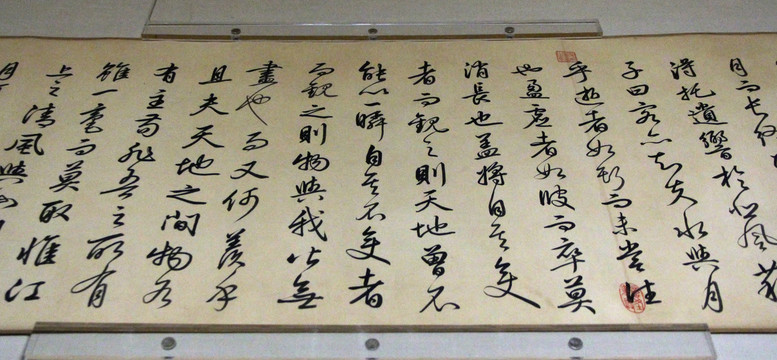 月而長終
得托遺響於悲風蘇
子曰客亦知夫水與月
乎逝者如斯而未嘗往
也盈虛者如彼而卒莫
消長也蓋將自其變
者而觀之則天地曾不
能以一瞬自其不變者
而觀之則物與我皆無
盡也而又何羨乎
且夫天地之間物各
有主苟非吾之所有
雖一毫而莫取惟江
上之清風與山
月